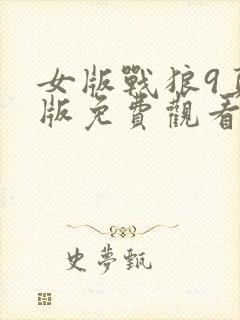 女版戰狼9頁
版免費觀看
史夢甄